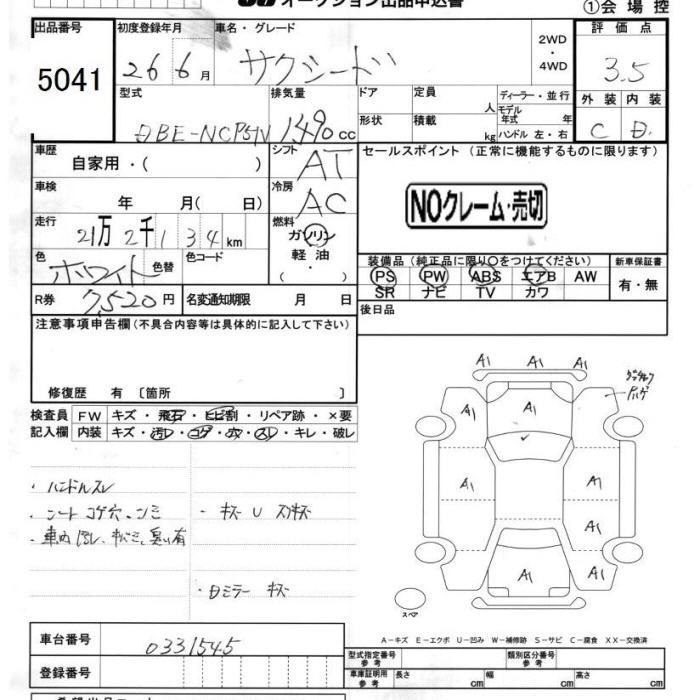 オークション出品申込書
①会場控
出品番号
5041
初度登録年月
26 6 月
車名・グレード
サクシード
2WD
・
4WD
評価点
3.5
外装 内装
C D
型式
DBE-NCP51V
排気量
1490 cc
ドア
定員
人
ディーラー・並行
モデル年式 年
形状
積載
kg
ハンドル 左・右
車歴
自家用・( )
シフト
AT
セールスポイント (正常に機能するものに限ります)
NOクレーム・売切
車検
年 月( 日)
冷房
AC
走行
21万 2千 1 3 4 km
燃料
ガソリン
軽油
( ・ )
色
ホワイト
色替
色コード
装備品(純正品に限り〇をつけてください)
PS PW ABS エアB AW
SR ナビ TV カワ
新車保証書
有・無
R券 7,520 円
名変通知期限 月 日
後日品
注意事項申告欄(不具合内容等は具体的に記入して下さい)
修復歴 有 〔箇所 〕
検査員
記入欄
FW キズ・飛石・ヒビ割・リペア跡・×要
内装 キズ・汚レ・コゲ・穴・スレ・キレ・破レ
・ハンドルスレ
・シート コゲ穴、シミ
・キズ U
・車内
臭い有
ミラー キズ
A1 A1 A1
A1 A1 A1
A1 A1
A1
A1 A1 A1
スペア
A-キズ E-エクボ U-凹み W-補修跡 S-サビ C-腐食 XX-交換済
車台番号
0331545
登録番号
型式指定番号
参考
類別区分番号
参考
車庫証明用
参考
長さ cm
幅 cm
高さ cm